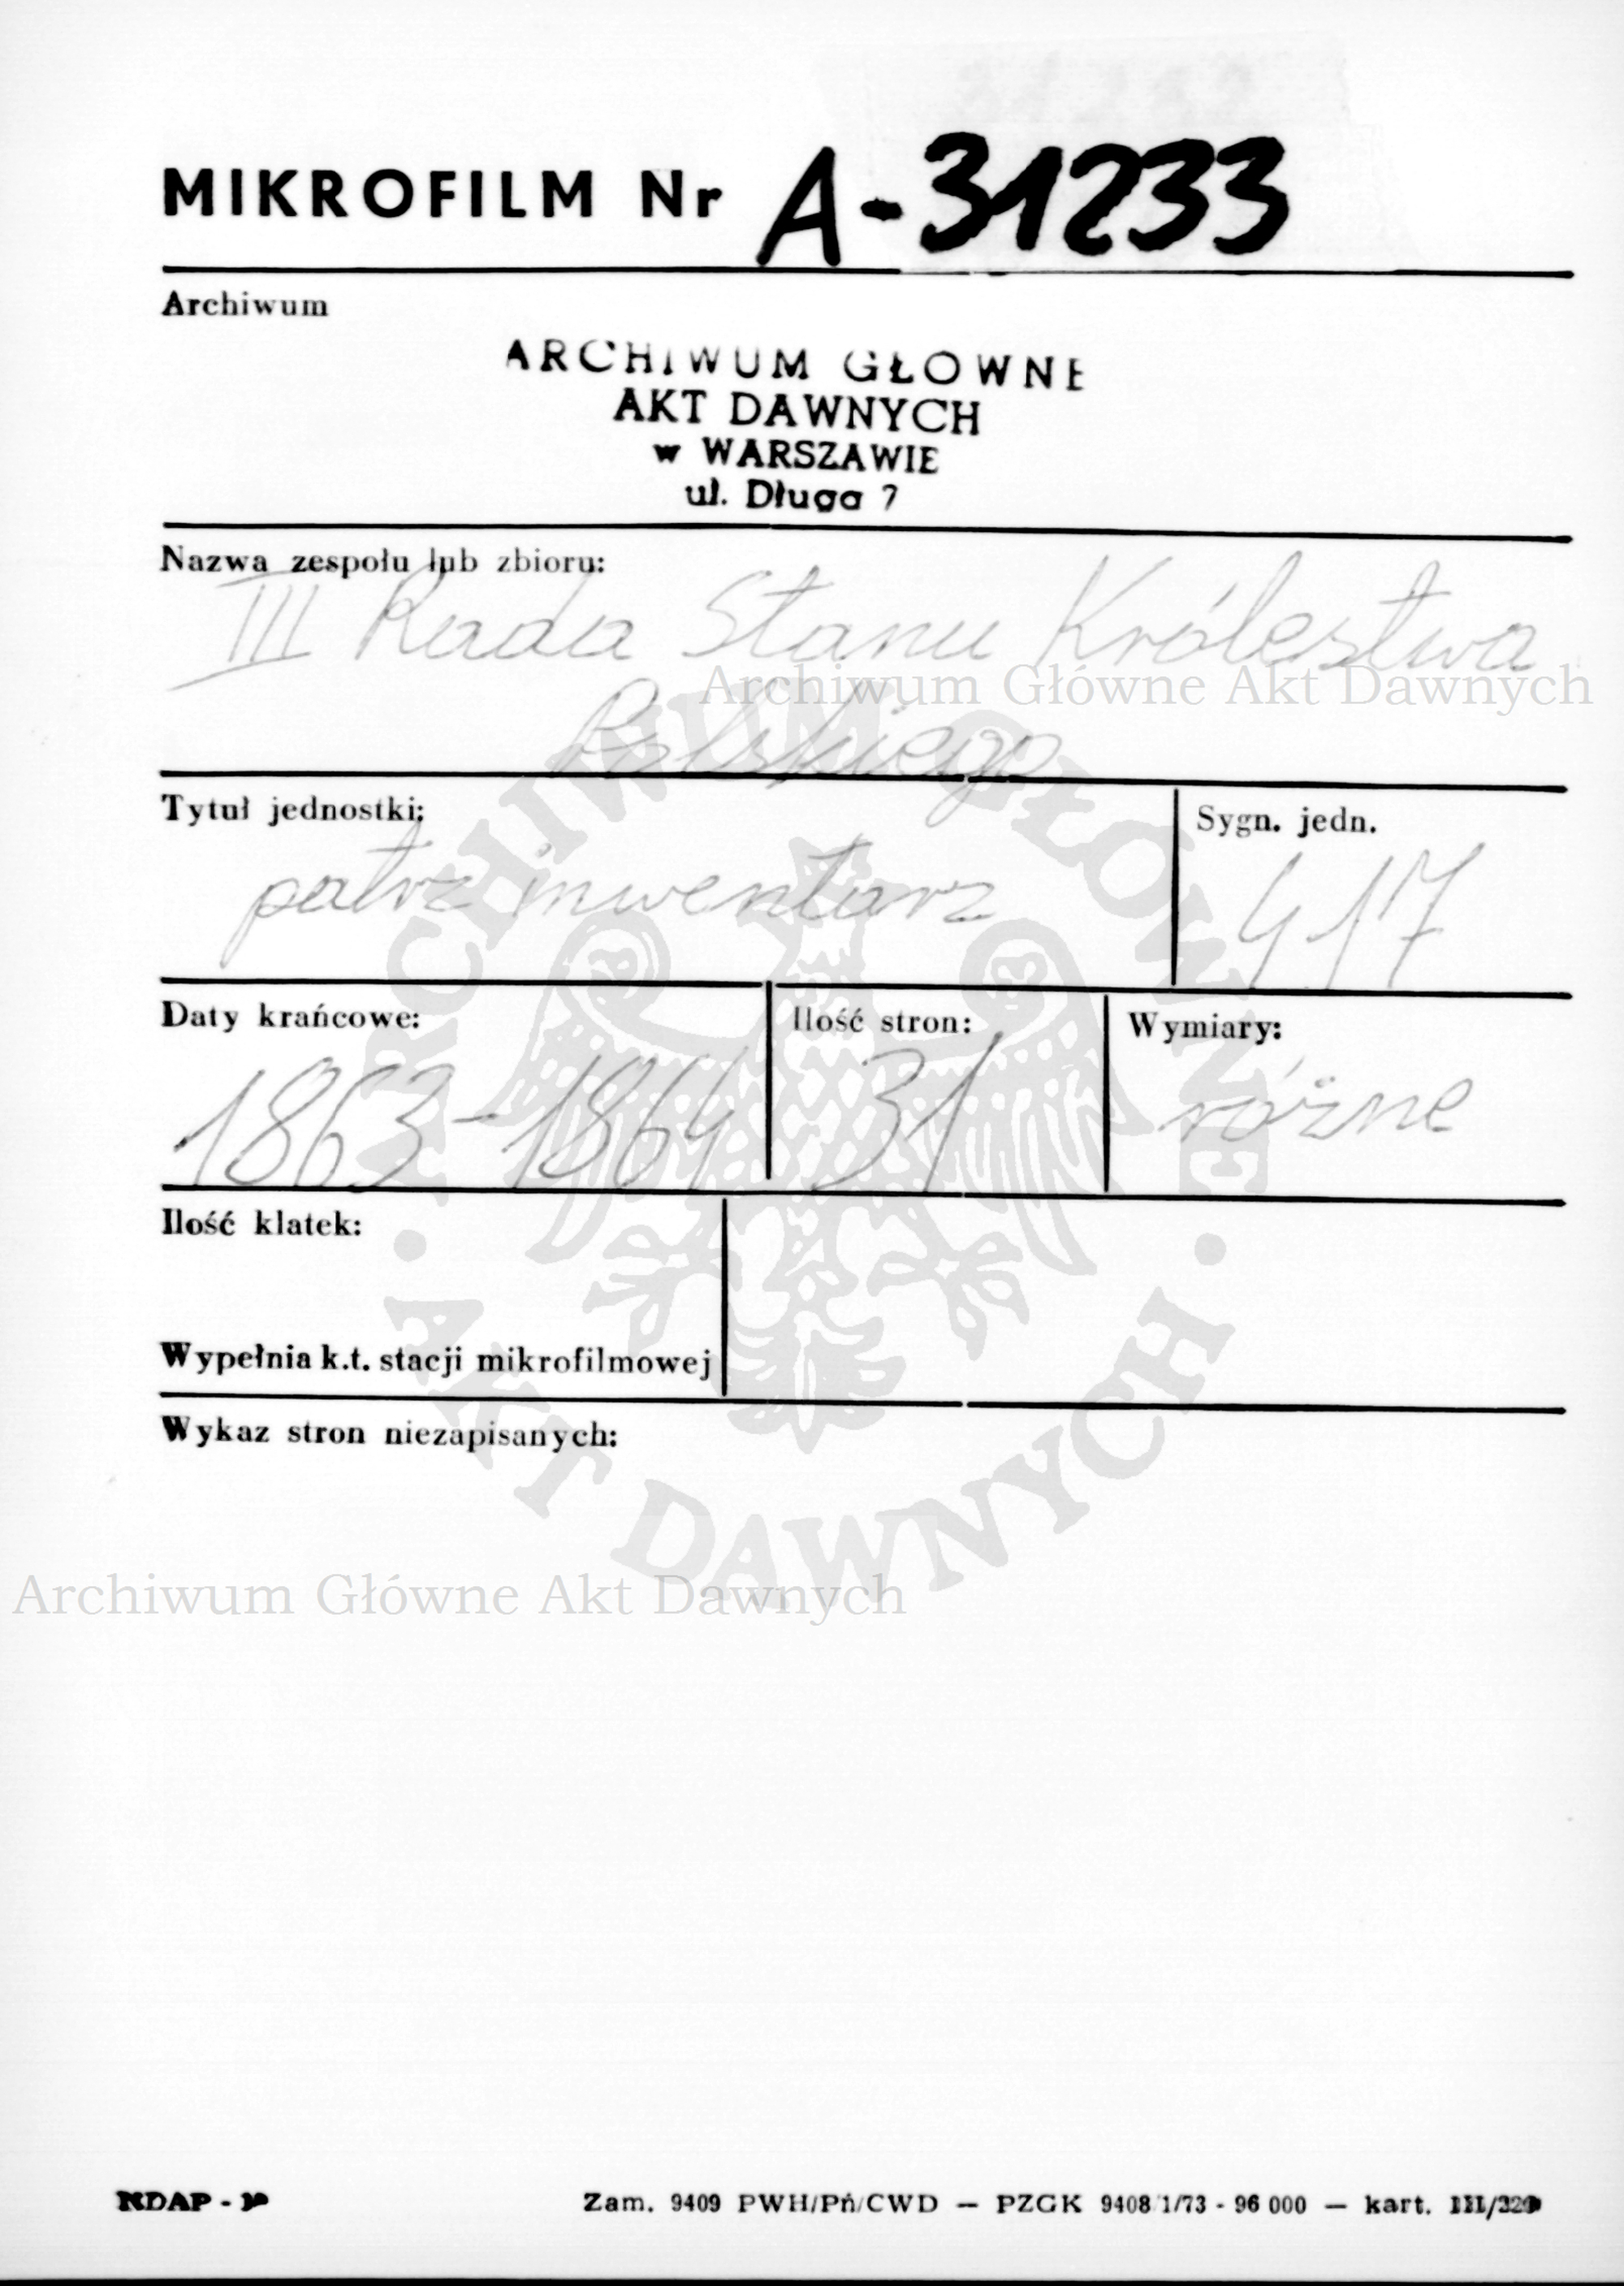 MIKROFILM Nr A-31233
Archiwum
ARCHIWUM GŁOWNE
AKT DAWNYCH
w WARSZAWIE
ul. Długa 7
Nazwa zespołu lub zbioru:
III Rada Stanu Królestwa
Archiwum Główne Akt Dawnych
Polskiego
Tytuł jednostki:
patrz inwentarz
Sygn. jedn.
417
Daty krańcowe:
1863-1864
Ilość stron:
31
Wymiary:
różne
Ilość klatek:
Wypełnia k.t. stacji mikrofilmowej
Wykaz stron niezapisanych:
ARCHIWUM GŁÓWNE
· AKT DAWNYCH ·
Archiwum Główne Akt Dawnych
NDAP -
Zam. 9409 PWH/Pń/CWD — PZGK 9408 1/73 - 96 000 — kart. III/220